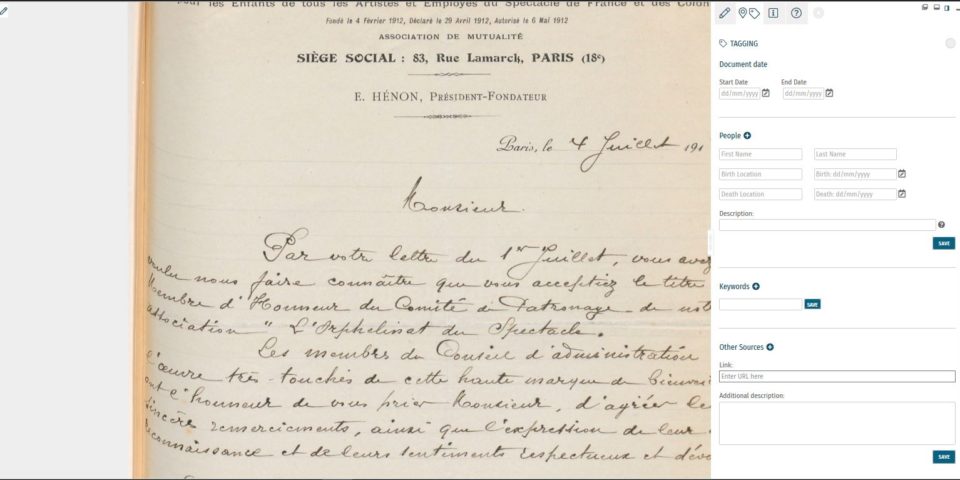 Pour les Enfants de tous les Artistes et Employés du Spectacle de France et des Colon
Fondé le 4 Février 1912, Déclaré le 29 Avril 1912, Autorisé le 6 Mai 1912
ASSOCIATION DE MUTUALITÉ
SIÈGE SOCIAL : 83, Rue Lamarck, PARIS (18e)
E. HÉNON, PRÉSIDENT-FONDATEUR
Paris, le 4 Juillet 191
Monsieur
Par votre lettre du 1er Juillet, vous avez
voulu nous faire connaître que vous acceptiez le titre
Membre d'Honneur du Comité de Patronage de not
association " L'Orphelinat du Spectacle.
Les membres du Conseil d'administration
l'œuvre très-touchés de cette haute marque de bienvei
ont l'honneur de vous prier Monsieur, d'agréer le
sincères remerciements, ainsi que l'expression de leur
reconnaissance et de leurs sentiments respectueux et dévo
TAGGING
Document date
Start Date End Date
dd/mm/yyyy dd/mm/yyyy
People
First Name Last Name
Birth Location Birth: dd/mm/yyyy
Death Location Death: dd/mm/yyyy
Description:
SAVE
Keywords
SAVE
Other Sources
Link:
Enter URL here
Additional description:
SAVE